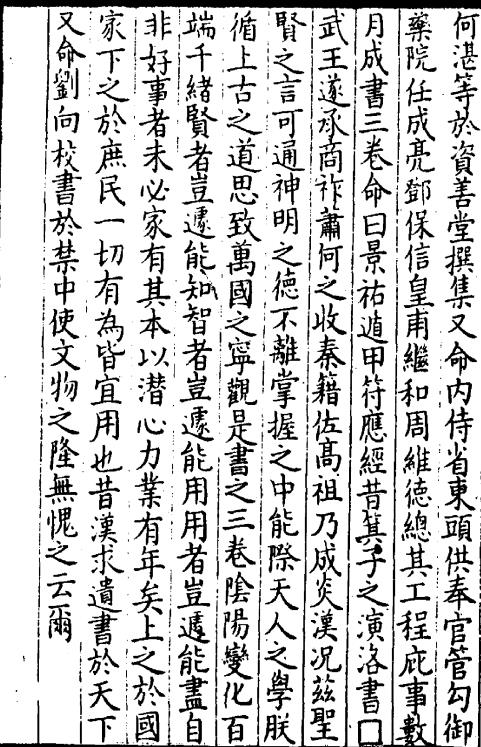 何湛等於資善堂撰集又命内侍省東頭供奉官管勾御
藥院任成亮鄧保信皇甫繼和周維德總其工程庇事數
月成書三卷命曰景祐遁甲符應經昔箕子之演洛書□
武王遂承商祚蕭何之收秦籍佐高祖乃成炎漢况兹聖
賢之言可通神明之德不離掌握之中能際天人之學朕
循上古之道思致萬國之寧觀是書之三卷陰陽變化百
端千緒賢者豈遽能知智者豈遽能用用者豈遽能盡自
非好事者未必家有其本以潜心力業有年矣上之於國
家下之於庶民一切有為皆宜用也昔漢求遺書於天下
又命劉向校書於禁中使文物之隆無愧之云爾